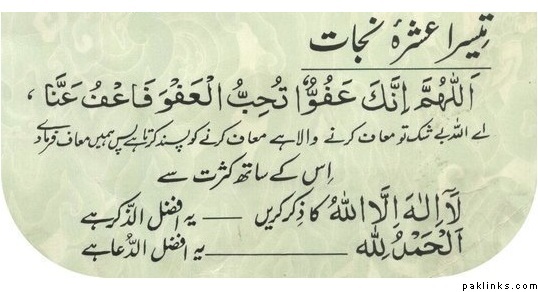 تیسرا عشرۂ نجات
اَللّٰهُمَّ اِنَّكَ عَفُوٌّ تُحِبُّ الْعَفْوَ فَاعْفُ عَنَّا ،
اے اللہ بے شک تو معاف کرنے والا ہے معاف کرنے کو پسند کرتا ہے پس ہمیں معاف فرما دے
اِس کے ساتھ کثرت سے
لَآ اِلٰهَ اِلَّا اللّٰهُ کا ذِکر کریں — یہ افضل الذّکر ہے
اَلْحَمْدُ لِلّٰهِ ——— یہ افضل الدُّعا ہے
paklinks.com